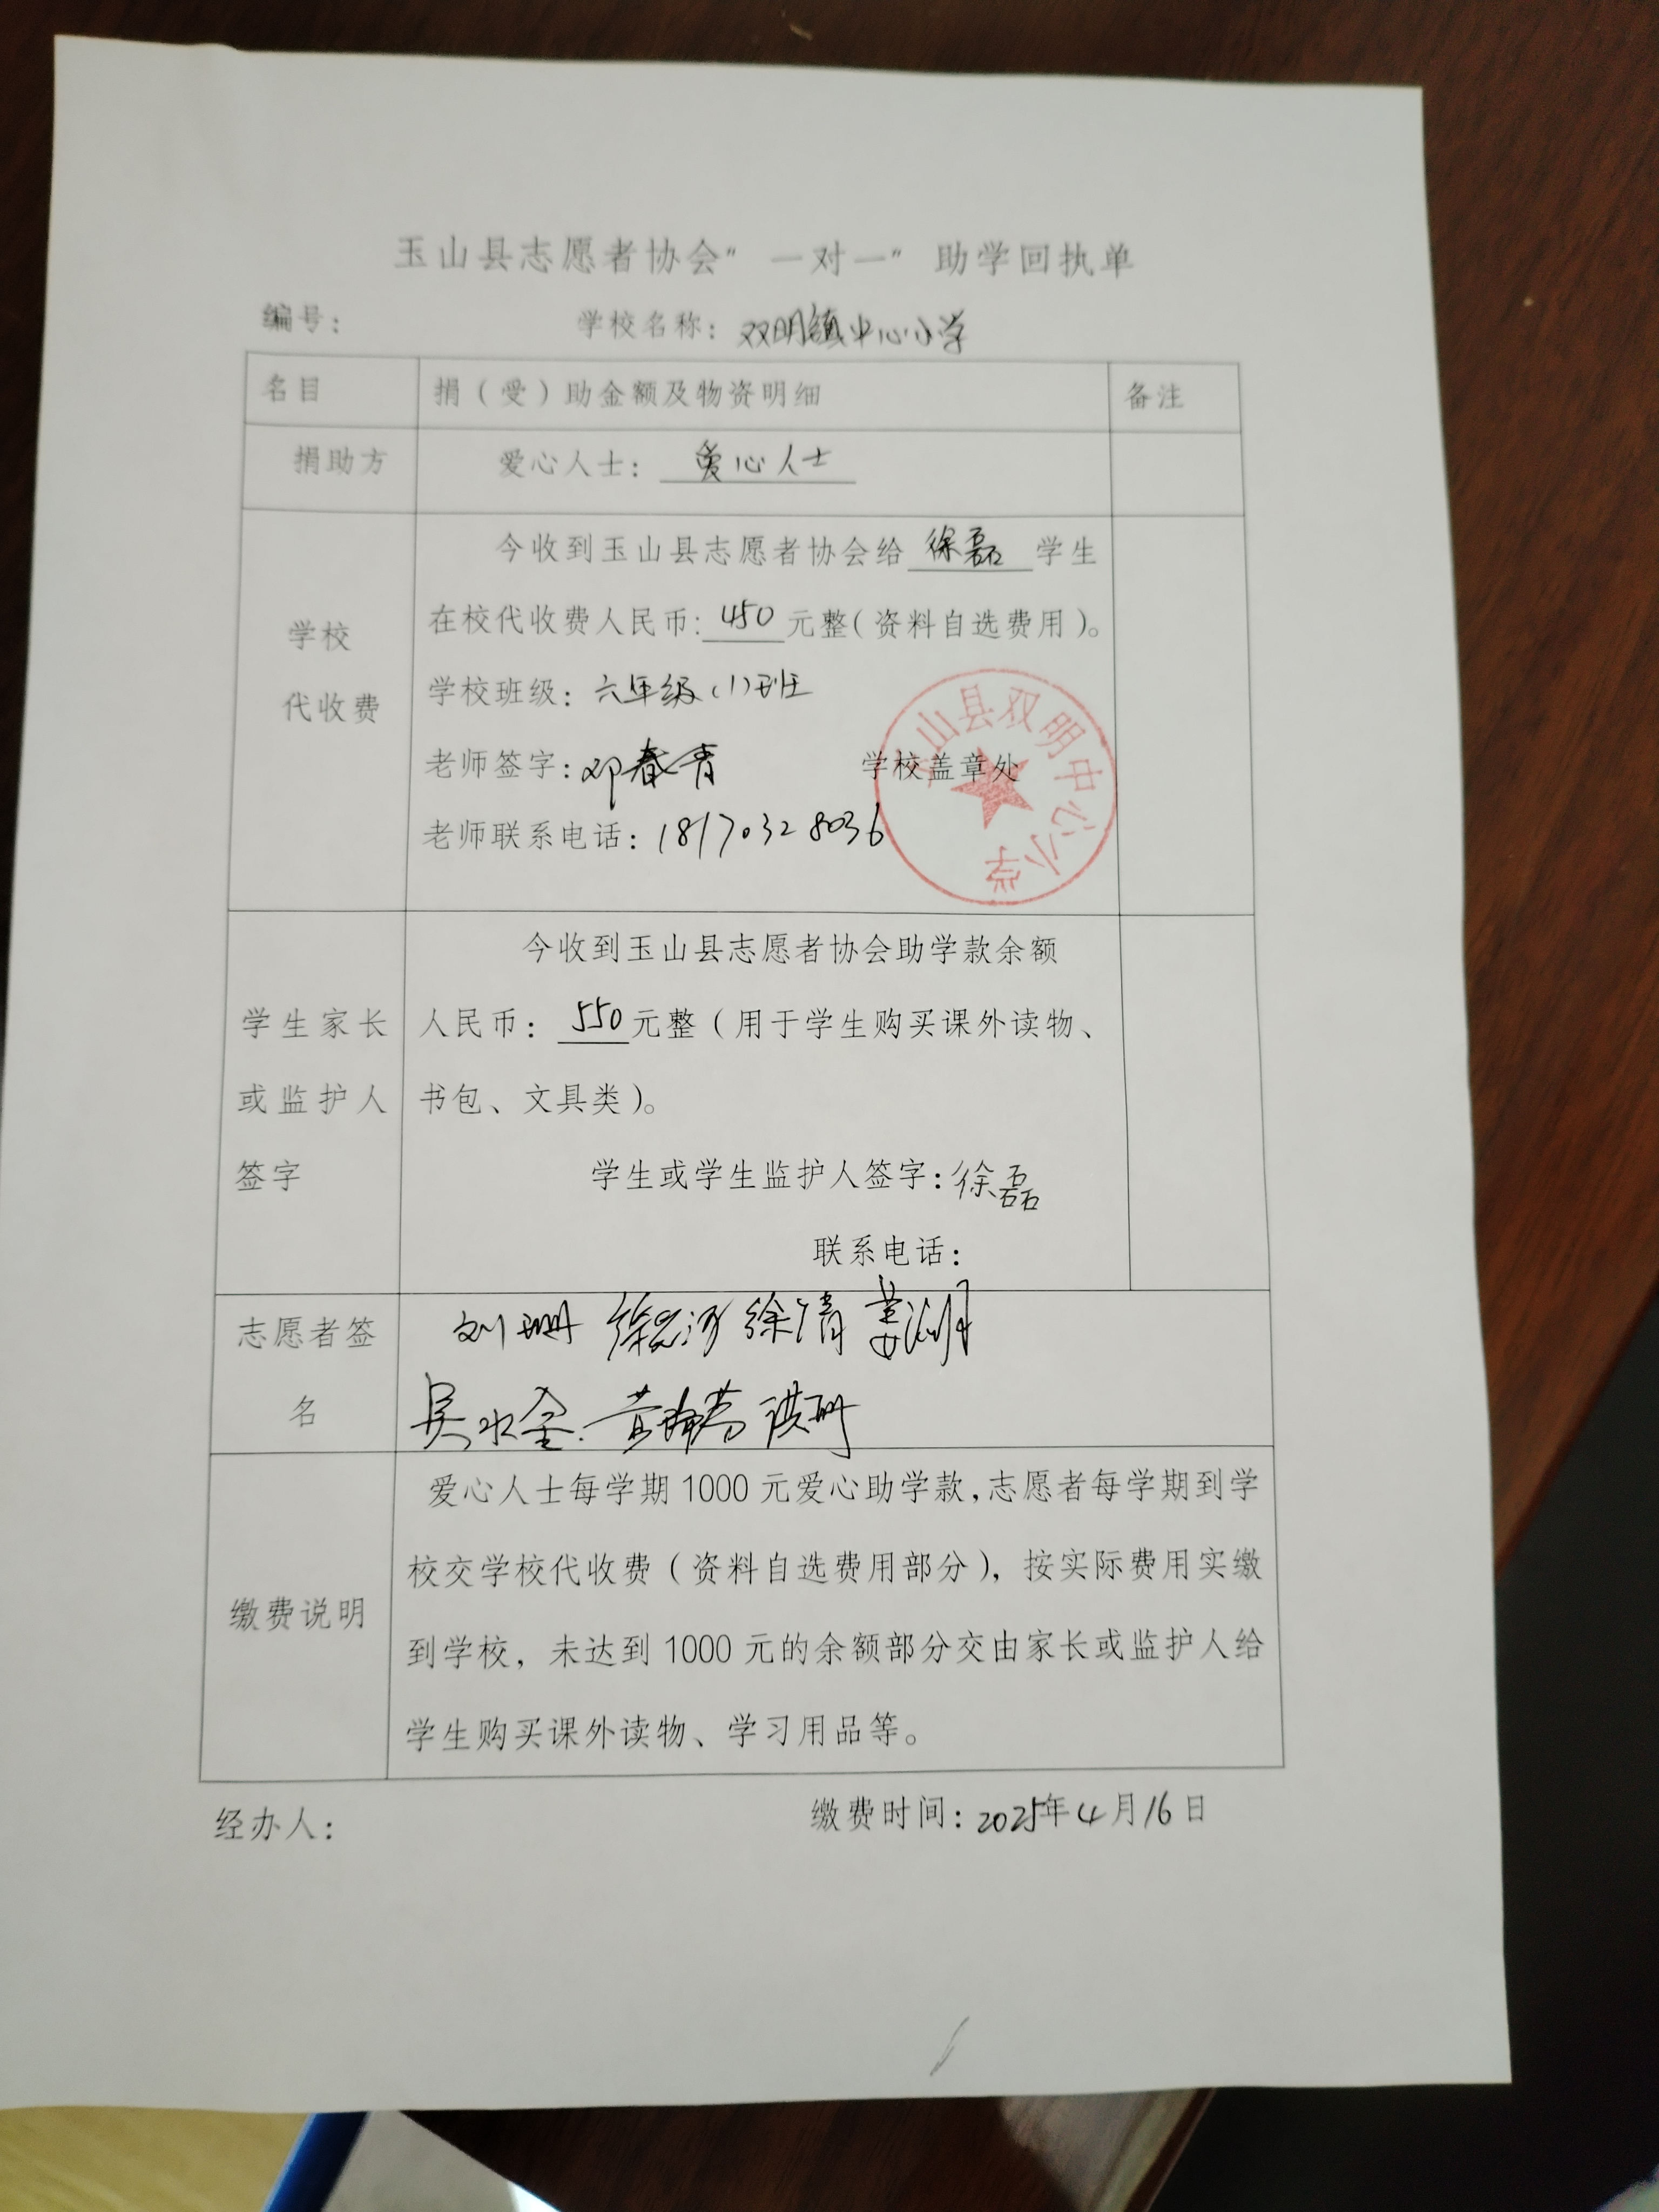 玉山县志愿者协会“一对一”助学回执单
编号： 学校名称：双明镇中心小学
名目 捐（受）助金额及物资明细 备注
捐助方 爱心人士：爱心人士
学校
代收费
今收到玉山县志愿者协会给 徐磊 学生
在校代收费人民币: 450 元整（资料自选费用）。
学校班级：六年级（1）班
老师签字：邓春青 学校盖章处
老师联系电话：18170328036
山县双明中心小学
学生家长
或监护人
签字
今收到玉山县志愿者协会助学款余额
人民币： 550 元整（用于学生购买课外读物、
书包、文具类）。
学生或学生监护人签字：徐磊
联系电话：
志愿者签
名
刘珊 徐 徐倩 姜
吴水金 黄 洪珊
缴费说明
爱心人士每学期1000元爱心助学款，志愿者每学期到学
校交学校代收费（资料自选费用部分），按实际费用实缴
到学校，未达到1000元的余额部分交由家长或监护人给
学生购买课外读物、学习用品等。
经办人： 缴费时间：2025年4月16日